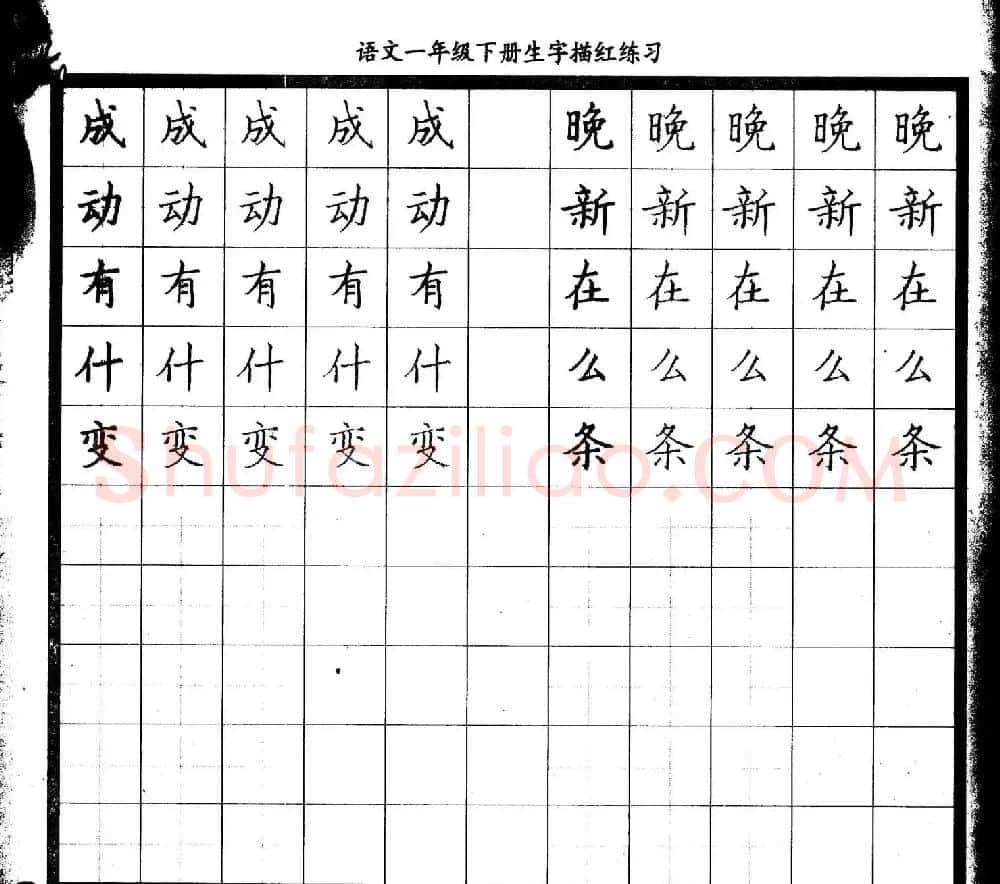 语文一年级下册生字描红练习
成 成 成 成 成 晚 晚 晚 晚 晚
动 动 动 动 动 新 新 新 新 新
有 有 有 有 有 在 在 在 在 在
什 什 什 什 什 么 么 么 么 么
变 变 变 变 变 条 条 条 条 条
Shufaziliao.COM